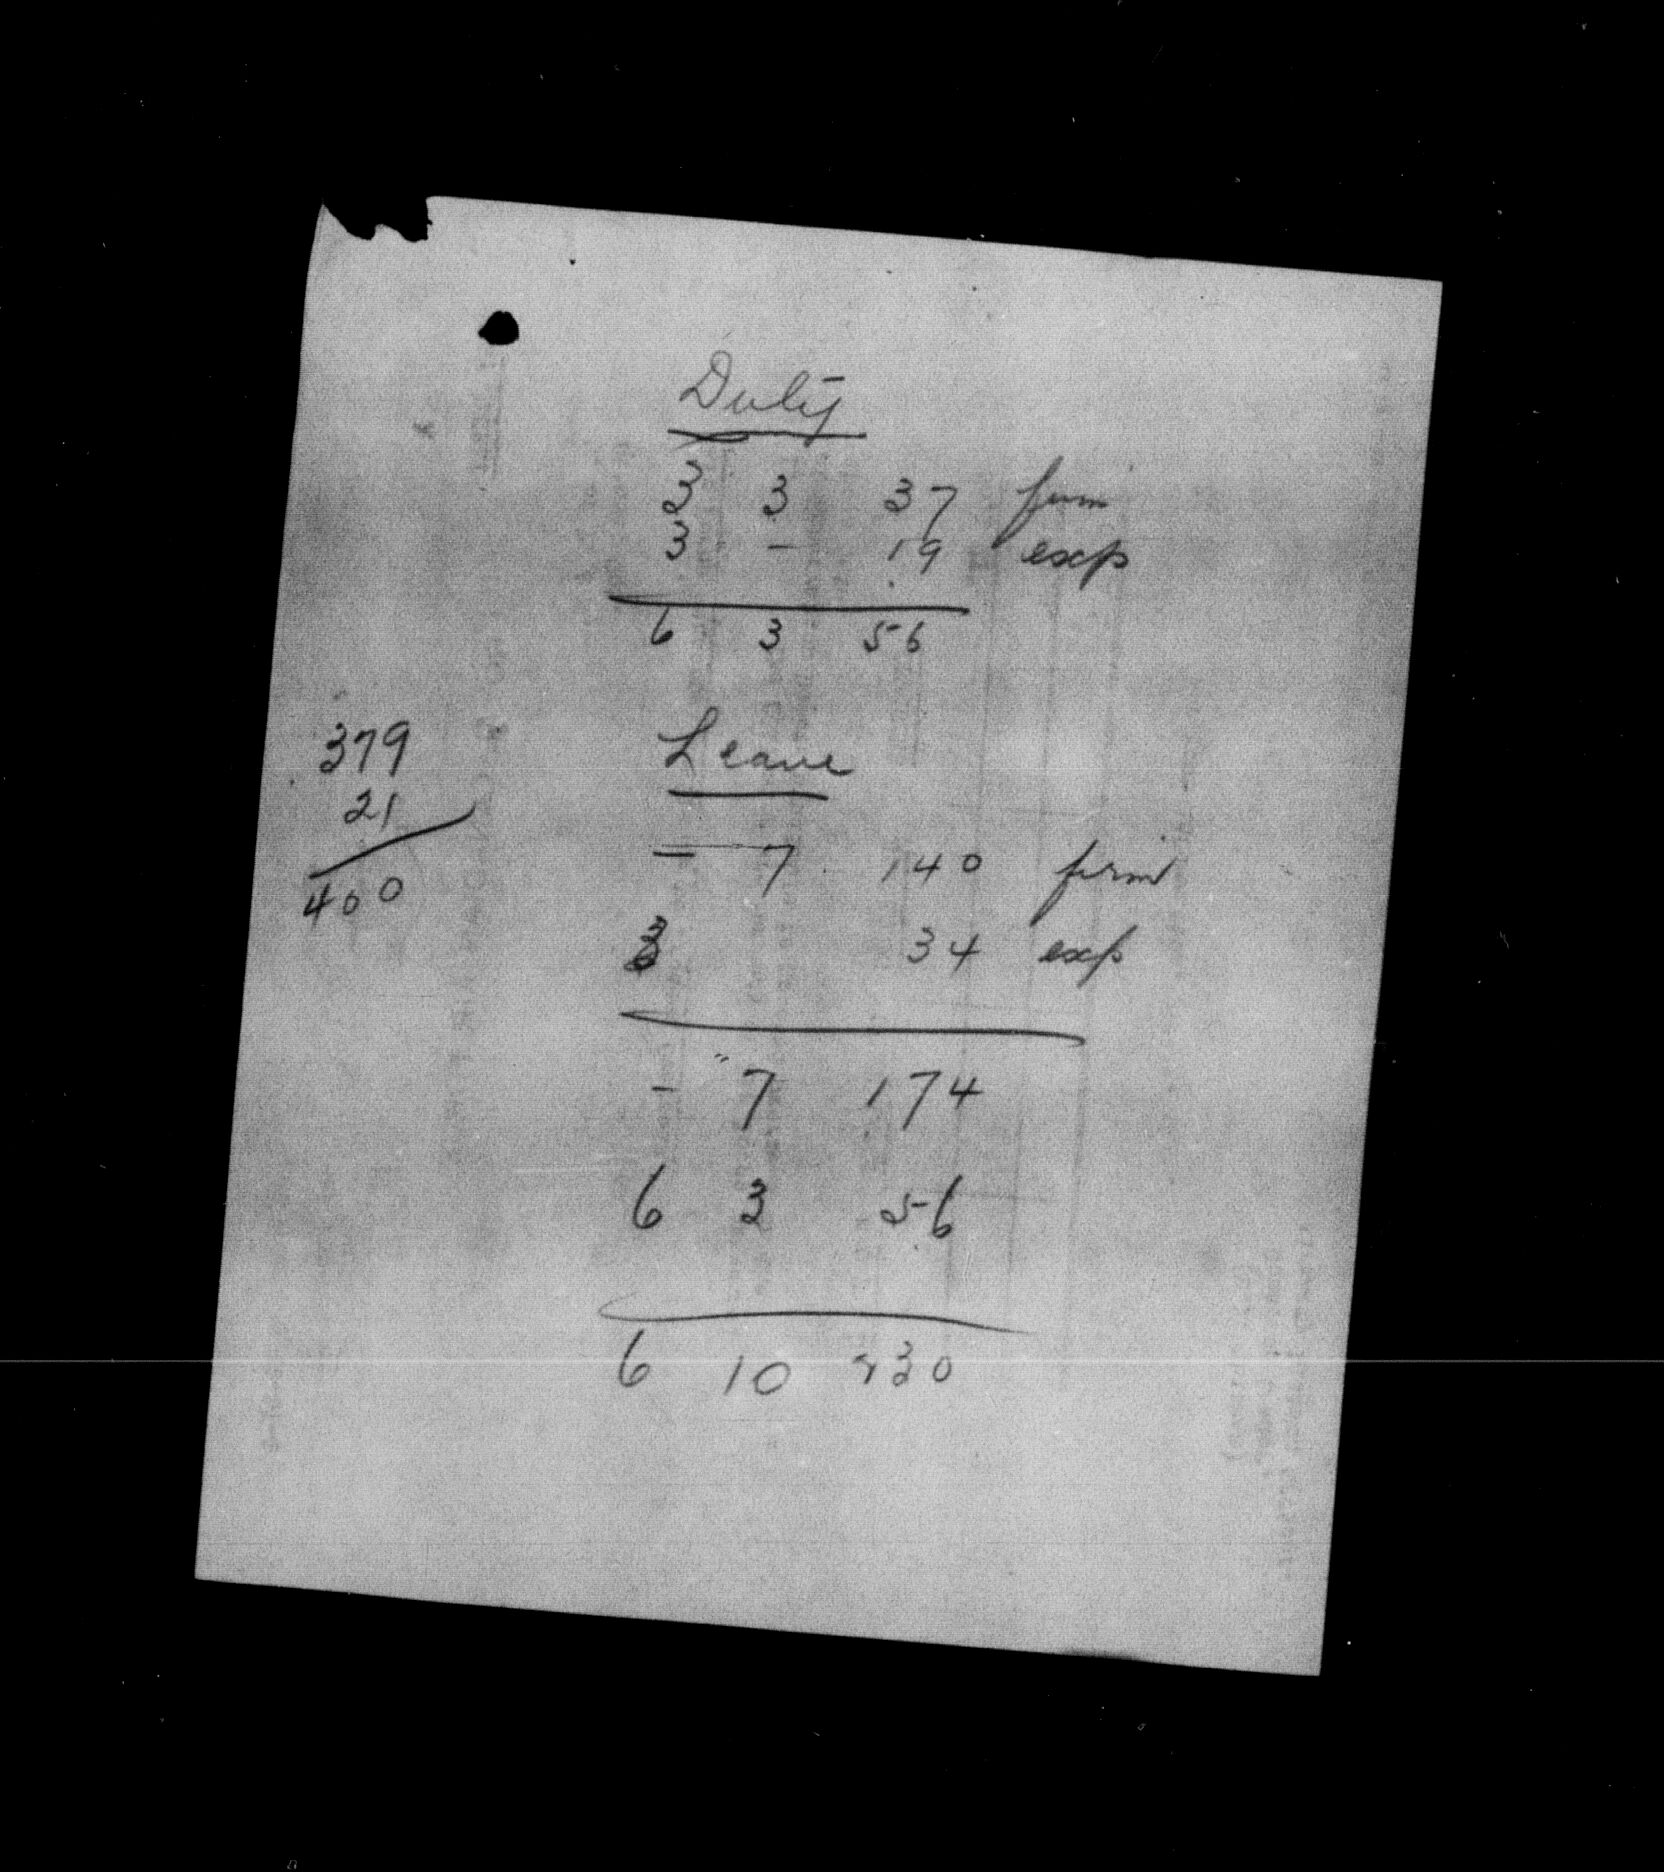 Duty
3 3 37 firm
3 - 19 exp
6 3 56
379
21
400
Leave
- 7 140 firm
3 34 exp
- 7 174
6 3 56
6 10 230